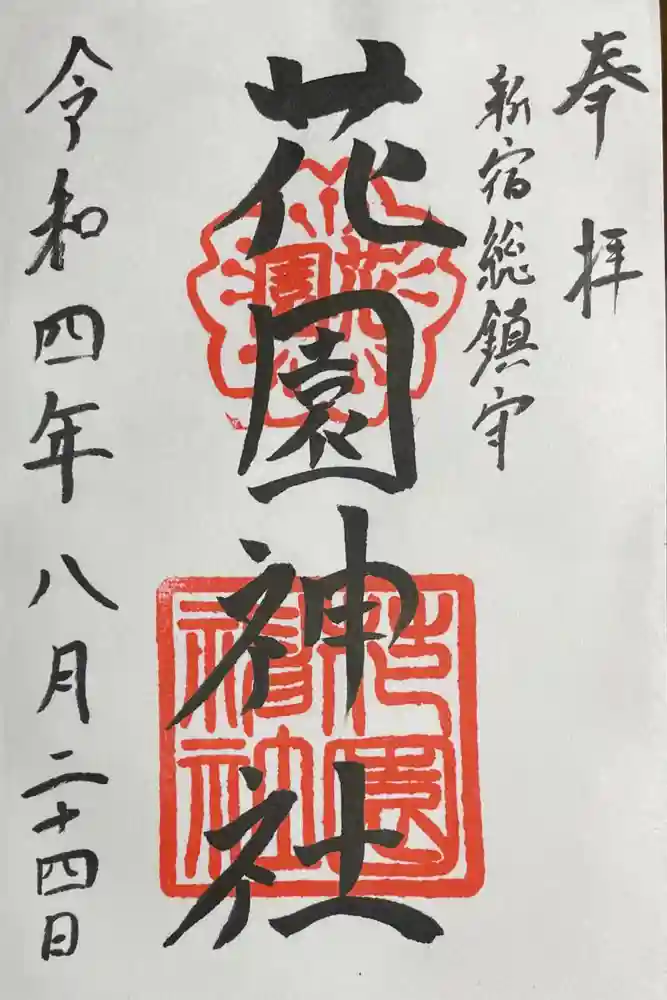 奉拝
新宿総鎮守
花園神社
花園
花園神社
令和四年八月二十四日